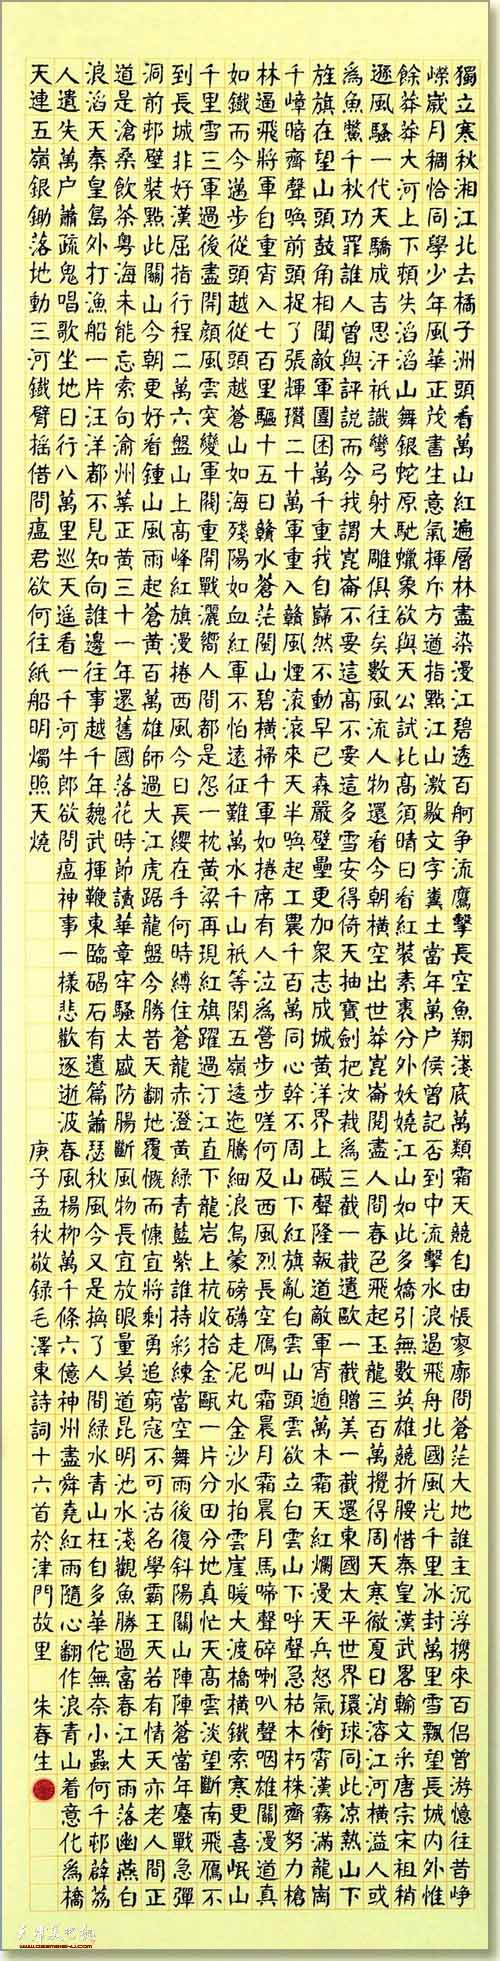 獨立寒秋湘江北去橘子洲頭看萬山紅遍層林盡染漫江碧透百舸爭流鷹擊長空魚翔淺底萬類霜天競自由悵寥廓問蒼茫大地誰主沉浮攜來百侶曾游憶往昔崢
嶸歲月稠恰同學少年風華正茂書生意氣揮斥方遒指點江山激敭文字糞土當年萬户侯曾記否到中流擊水浪遏飛舟北國風光千里冰封萬里雪飄望長城内外惟
餘莽莽大河上下頓失滔滔山舞銀蛇原馳蠟象欲與天公試比高須晴日看紅裝素裹分外妖嬈江山如此多嬌引無數英雄競折腰惜秦皇漢武畧輸文采唐宗宋祖稍
遜風騷一代天驕成吉思汗祇識彎弓射大雕俱往矣數風流人物還看今朝橫空出世莽崑崙閱盡人間春色飛起玉龍三百萬攪得周天寒徹夏日消溶江河橫溢人或
爲魚鱉千秋功罪誰人曾與評説而今我謂崑崙不要這高不要這多雪安得倚天抽寶劍把汝裁爲三截一截遺歐一截贈美一截還東國太平世界環球同此凉熱山下
旌旗在望山頭鼓角相聞敵軍圍困萬千重我自巋然不動早已森嚴壁壘更加衆志成城黄洋界上礮聲隆報道敵軍宵遁萬木霜天紅爛漫天兵怒氣衝霄漢霧滿龍崗
千嶂暗齊聲喚前頭捉了張輝瓚二十萬軍重入贛風煙滚滚來天半喚起工農千百萬同心幹不周山下紅旗亂白雲山頭雲欲立白雲山下呼聲急枯木朽株齊努力槍
林逼飛將軍自重霄入七百里驅十五日贛水蒼茫閩山碧橫掃千軍如捲席有人泣爲營步步嗟何及西風烈長空雁叫霜晨月霜晨月馬啼聲碎喇叭聲咽雄關漫道真
如鐵而今邁步從頭越從頭越蒼山如海殘陽如血紅軍不怕遠征難萬水千山祇等閑五嶺逶迤騰細浪烏蒙磅礴走泥丸金沙水拍雲崖暖大渡橋橫鐵索寒更喜岷山
千里雪三軍過後盡開顔風雲突變軍閥重開戰灑嚮人間都是怨一枕黄粱再現紅旗躍過汀江直下龍岩上杭收拾金甌一片分田分地真忙天高雲淡望斷南飛雁不
到長城非好漢屈指行程二萬六盤山上高峰紅旗漫捲西風今日長纓在手何時縛住蒼龍赤澄黄緑青藍紫誰持彩練當空舞雨後復斜陽關山陣陣蒼當年鏖戰急彈
洞前邨壁裝點此關山今朝更好看鍾山風雨起蒼黄百萬雄師過大江虎踞龍盤今勝昔天翻地覆慨而慷宜將剩勇追窮寇不可沽名學霸王天若有情天亦老人間正
道是滄桑飲茶粤海未能忘索句渝州葉正黄三十一年還舊國落花時節讀華章牢騷太盛防腸斷風物長宜放眼量莫道昆明池水淺觀魚勝過富春江大雨落幽燕白
浪滔天秦皇島外打漁船一片汪洋都不見知向誰邊往事越千年魏武揮鞭東臨碣石有遺篇蕭瑟秋風今又是换了人間緑水青山枉自多華佗無奈小蟲何千邨薜荔
人遺失萬户蕭疏鬼唱歌坐地日行八萬里巡天遥看一千河牛郎欲問瘟神事一樣悲歡逐逝波春風楊柳萬千條六億神州盡舜堯紅雨隨心翻作浪青山着意化爲橋
天連五嶺銀鋤落地動三河鐵臂摇借問瘟君欲何往紙船明燭照天燒
庚子孟秋敬録毛澤東詩詞十六首於津門故里 朱春生